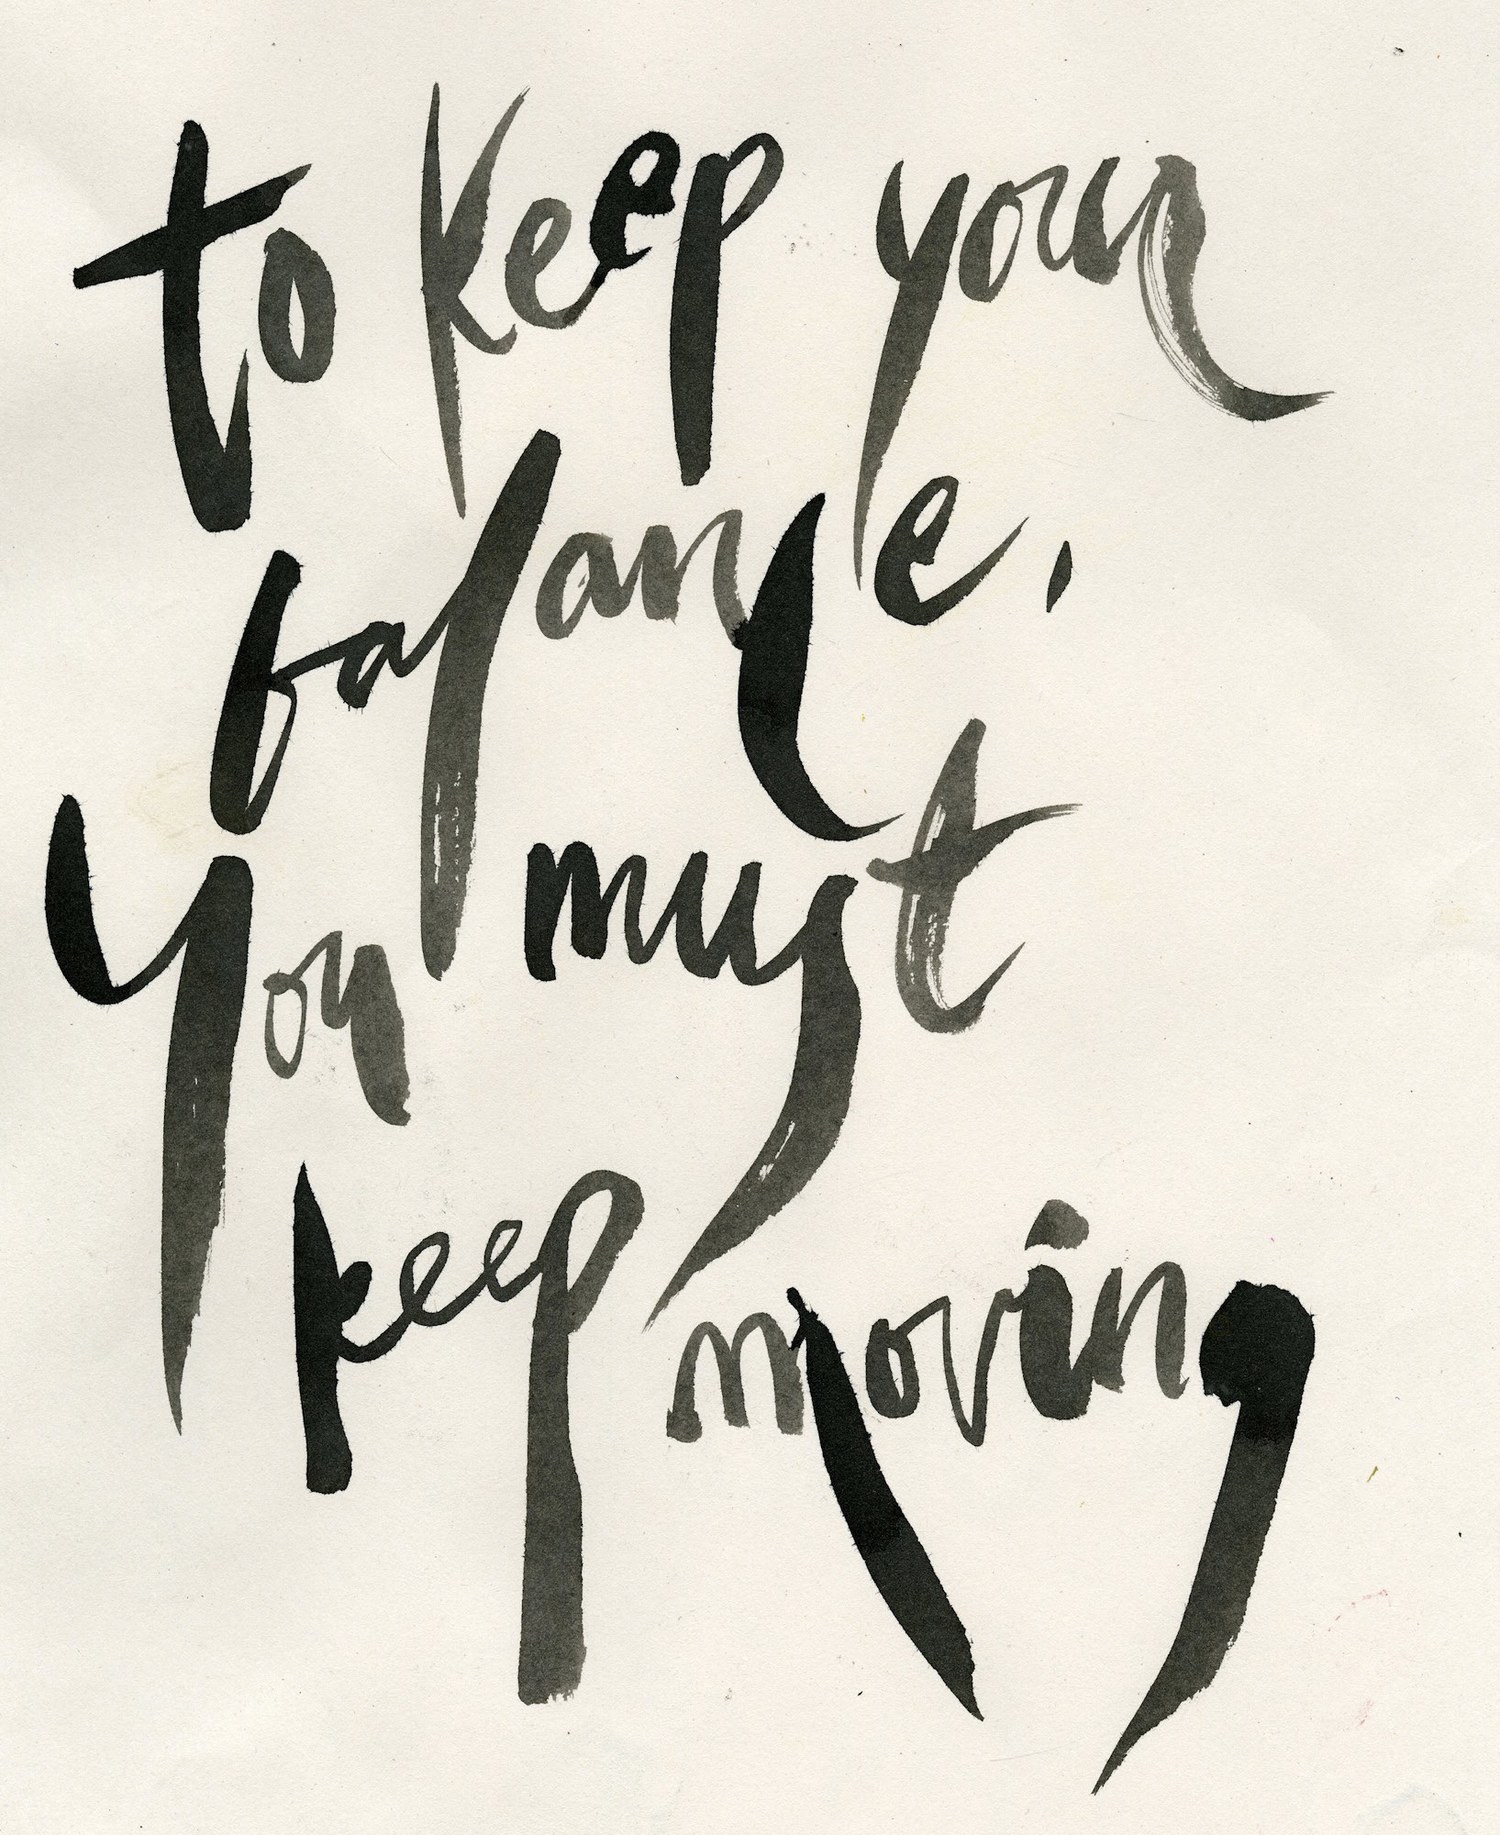 to keep your
balance,
you must
keep moving